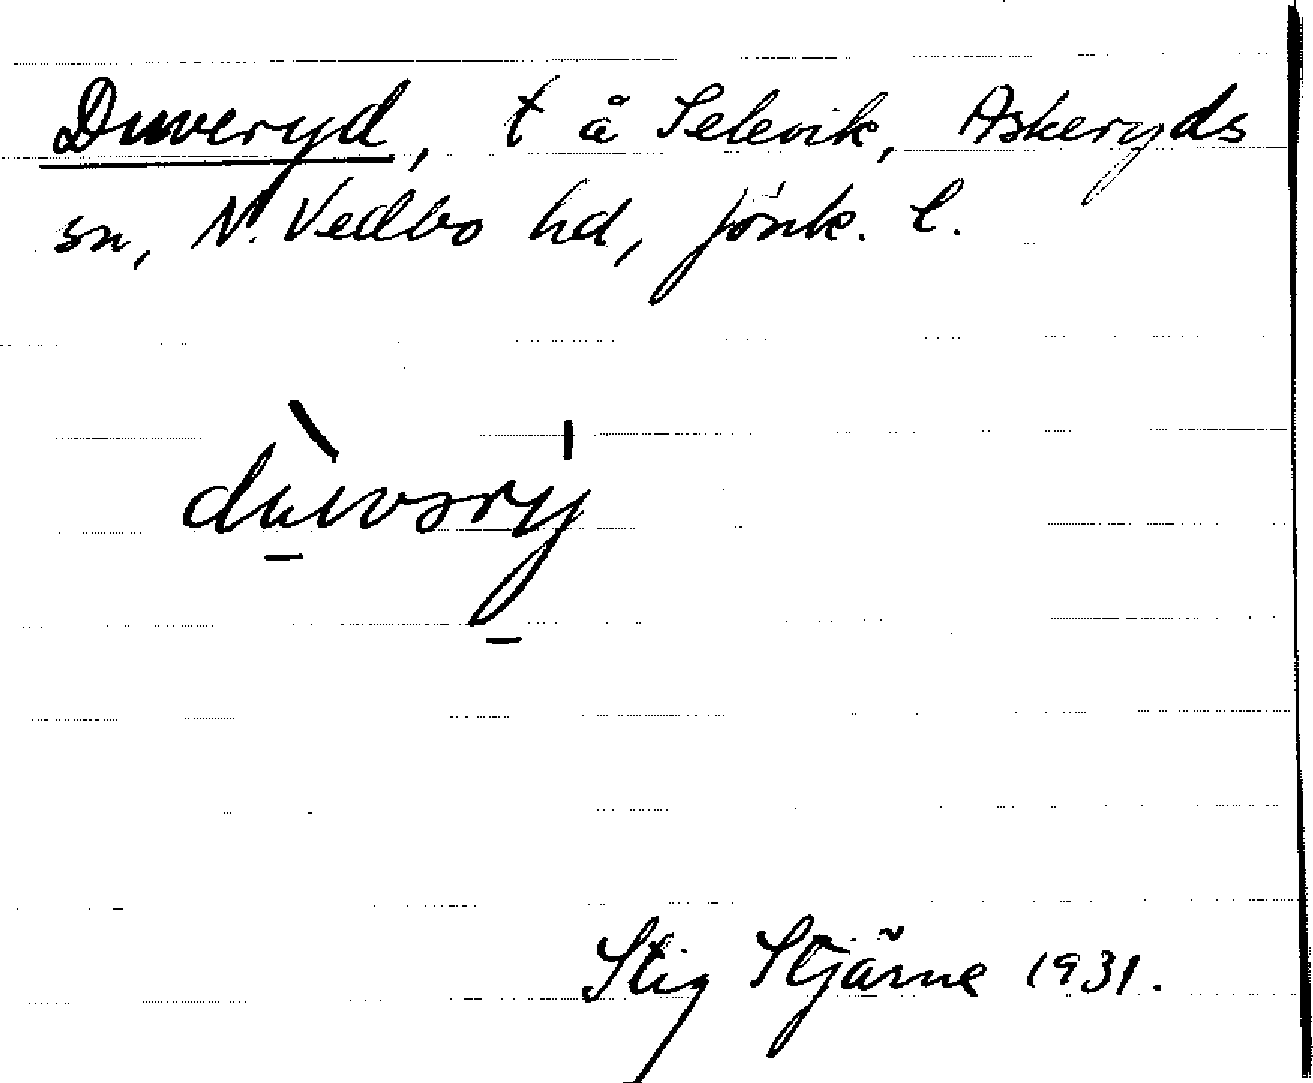 Duveryd, t å Selevik, Askeryds
sn, N. Vedbo hd, Jönk. l.
dùvərý
Stig Stjärne 1931.